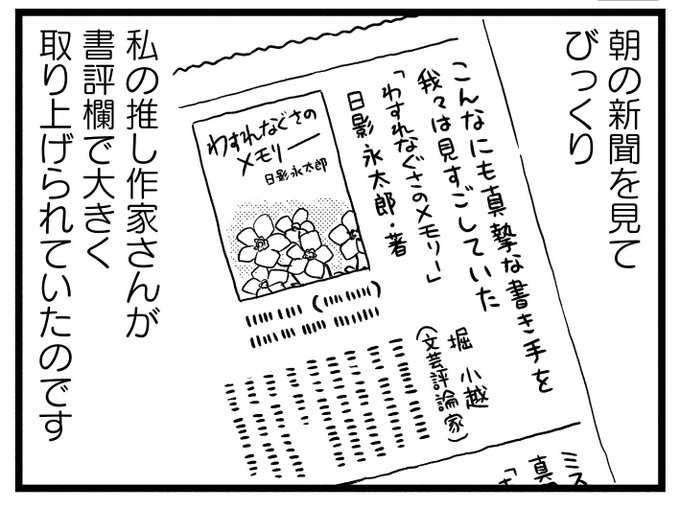 朝の新聞を見て
びっくり
こんなにも真摯な書き手を
我々は見すごしていた
「わすれなぐさのメモリー」
日影永太郎・著
わすれなぐさの
メモリー
日影永太郎
堀 小越
(文芸評論家)
ミス
真
「
私の推し作家さんが
書評欄で大きく
取り上げられていたのです